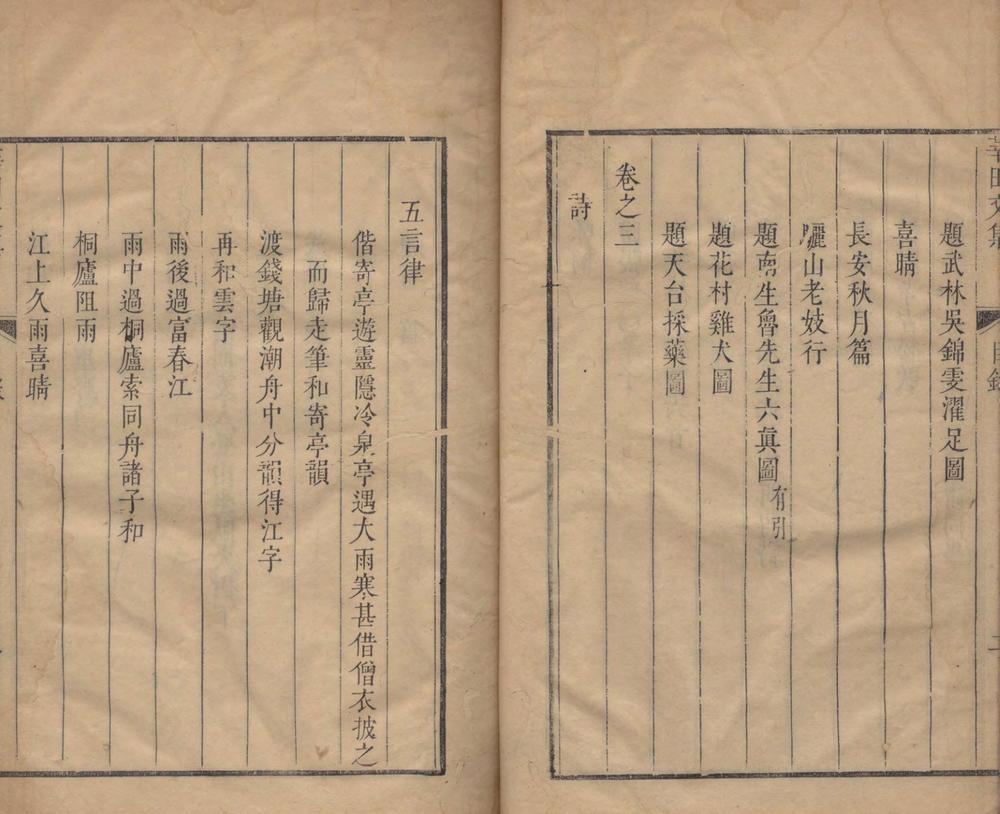 田文集
目錄
題武林吳錦雯濯足圖
喜晴
長安秋月篇
驪山老妓行
題南生魯先生六眞圖有引
題花村雞犬圖
題天台採藥圖
卷之三
詩
五言律
偕寄亭遊靈隱冷泉亭遇大雨寒甚借僧衣披之
而歸走筆和寄亭韻
渡錢塘觀潮舟中分韻得江字
再和雲字
雨後過富春江
雨中過桐廬索同舟諸子和
桐廬阻雨
江上久雨喜晴